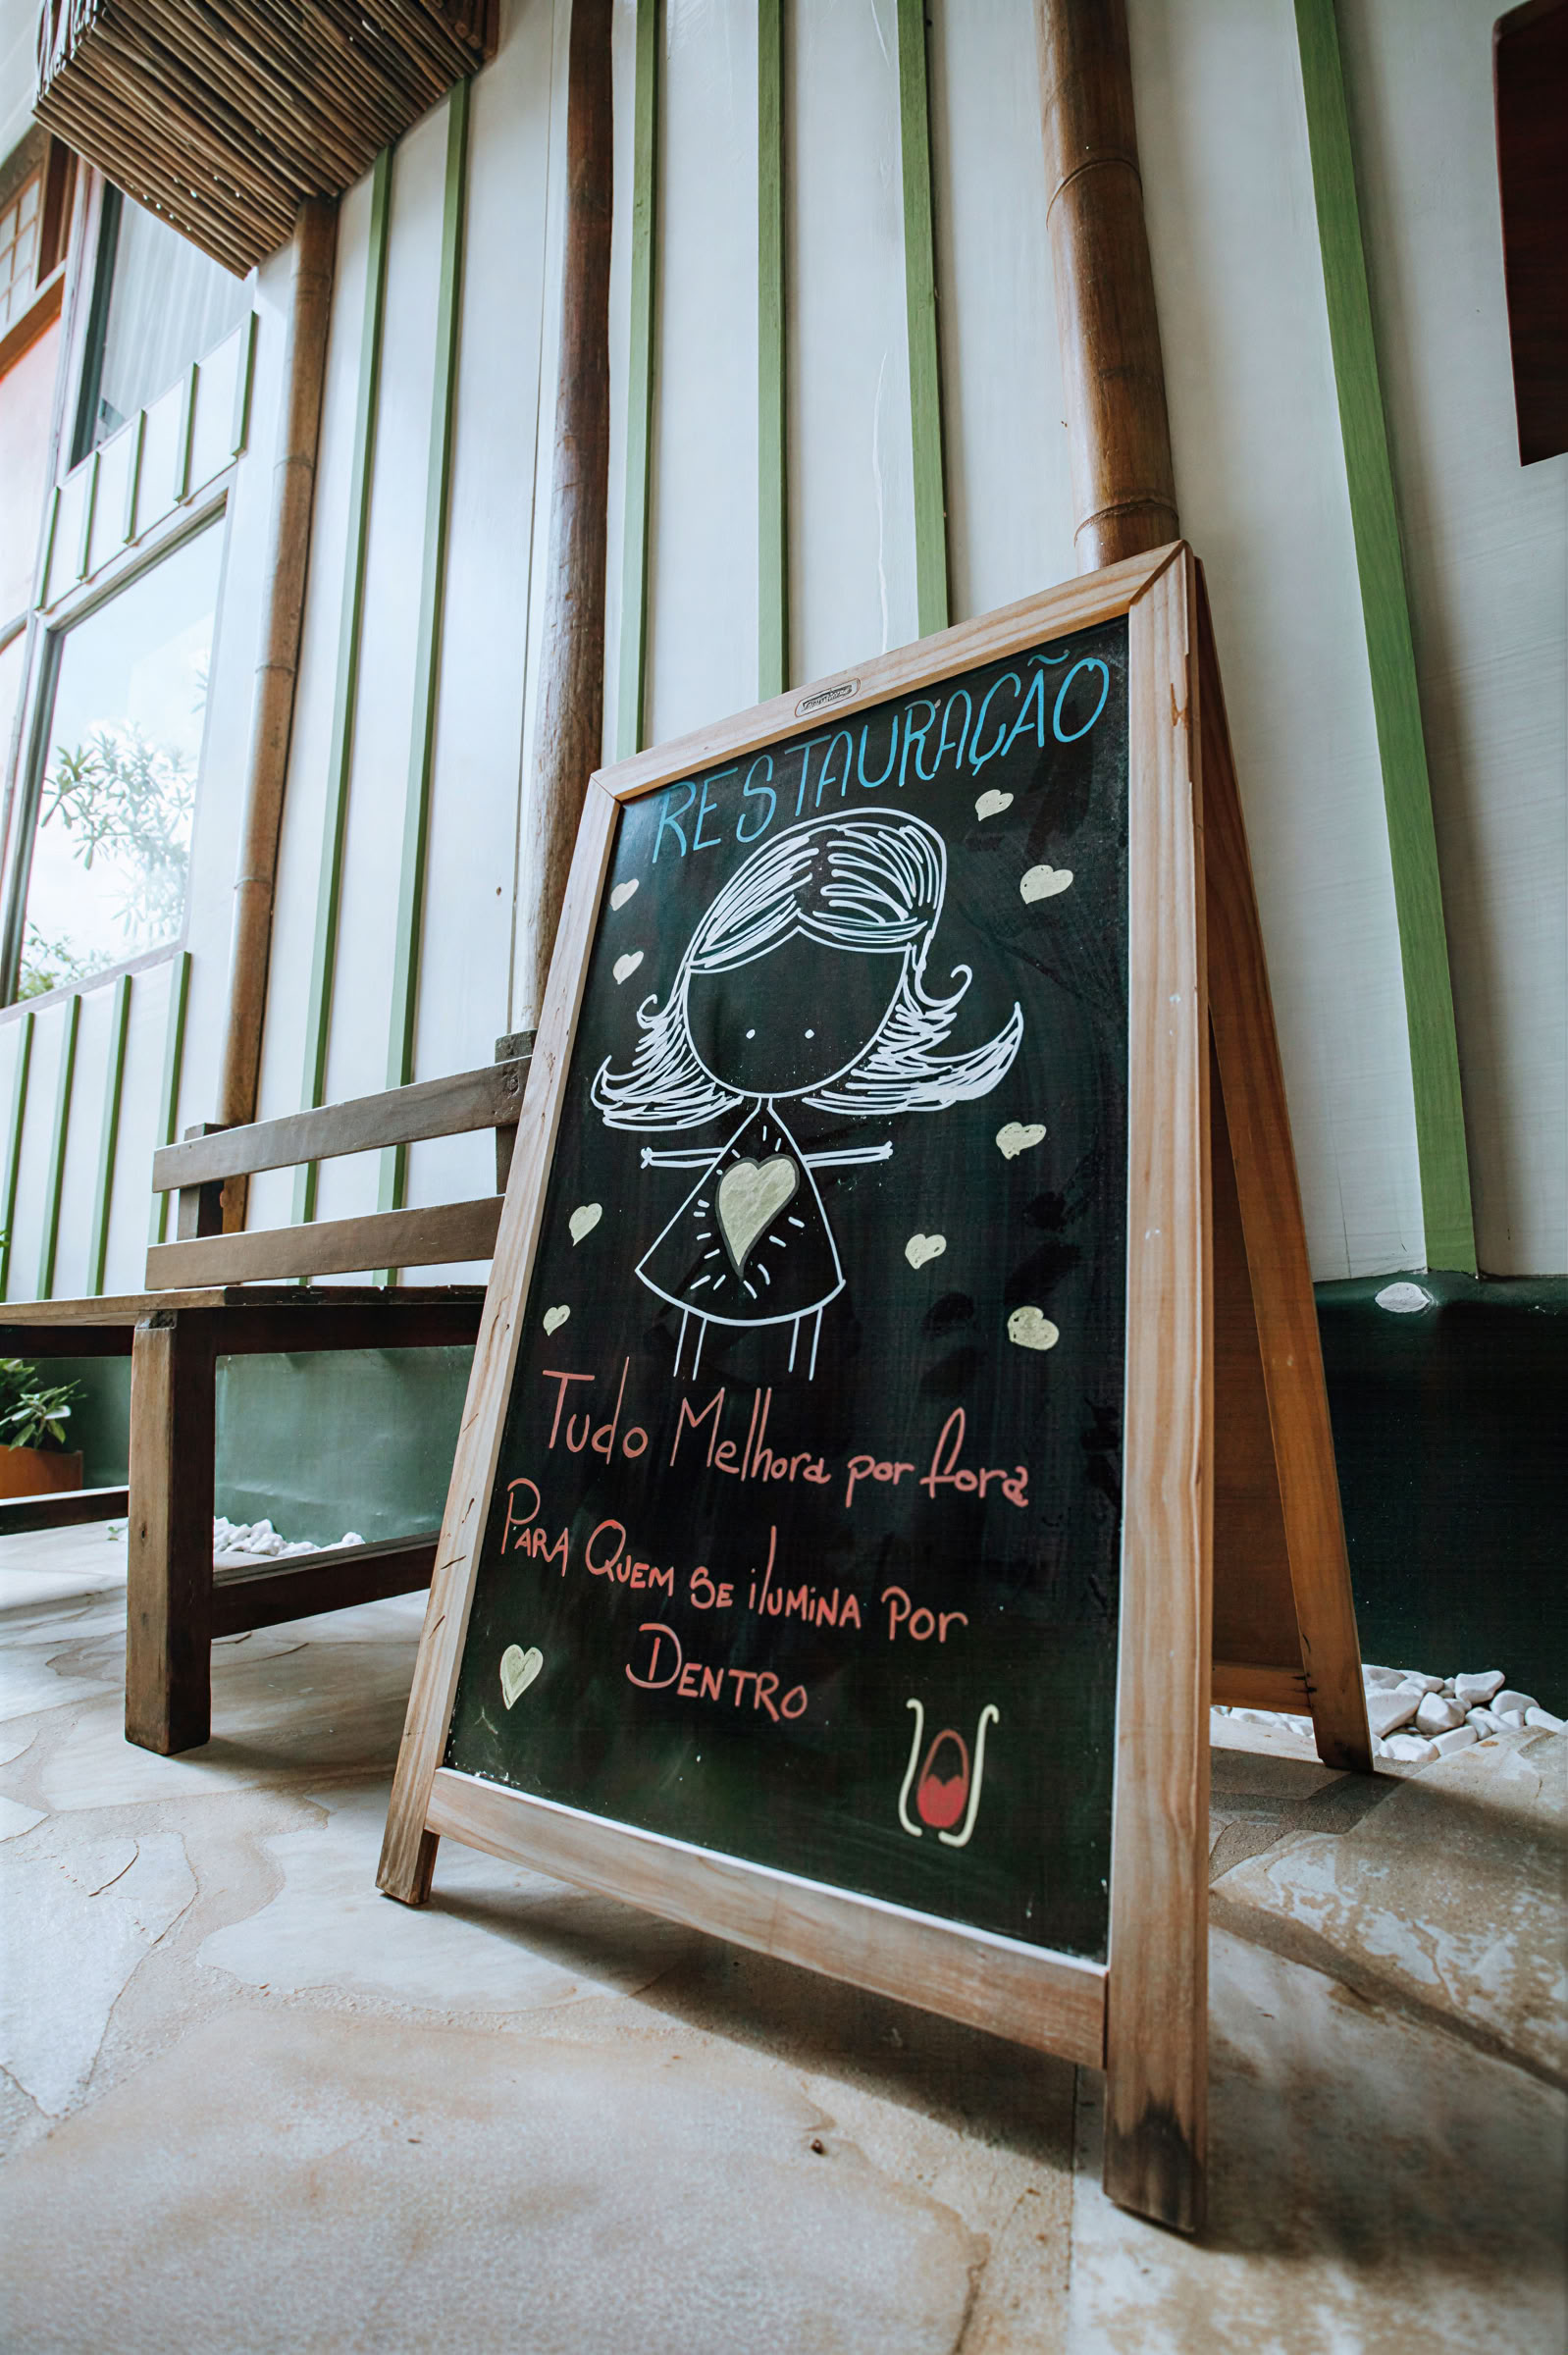 RESTAURAÇÃO
Tudo Melhora por fora
PARA QUEM SE ilUMiNA Por
DENTRO